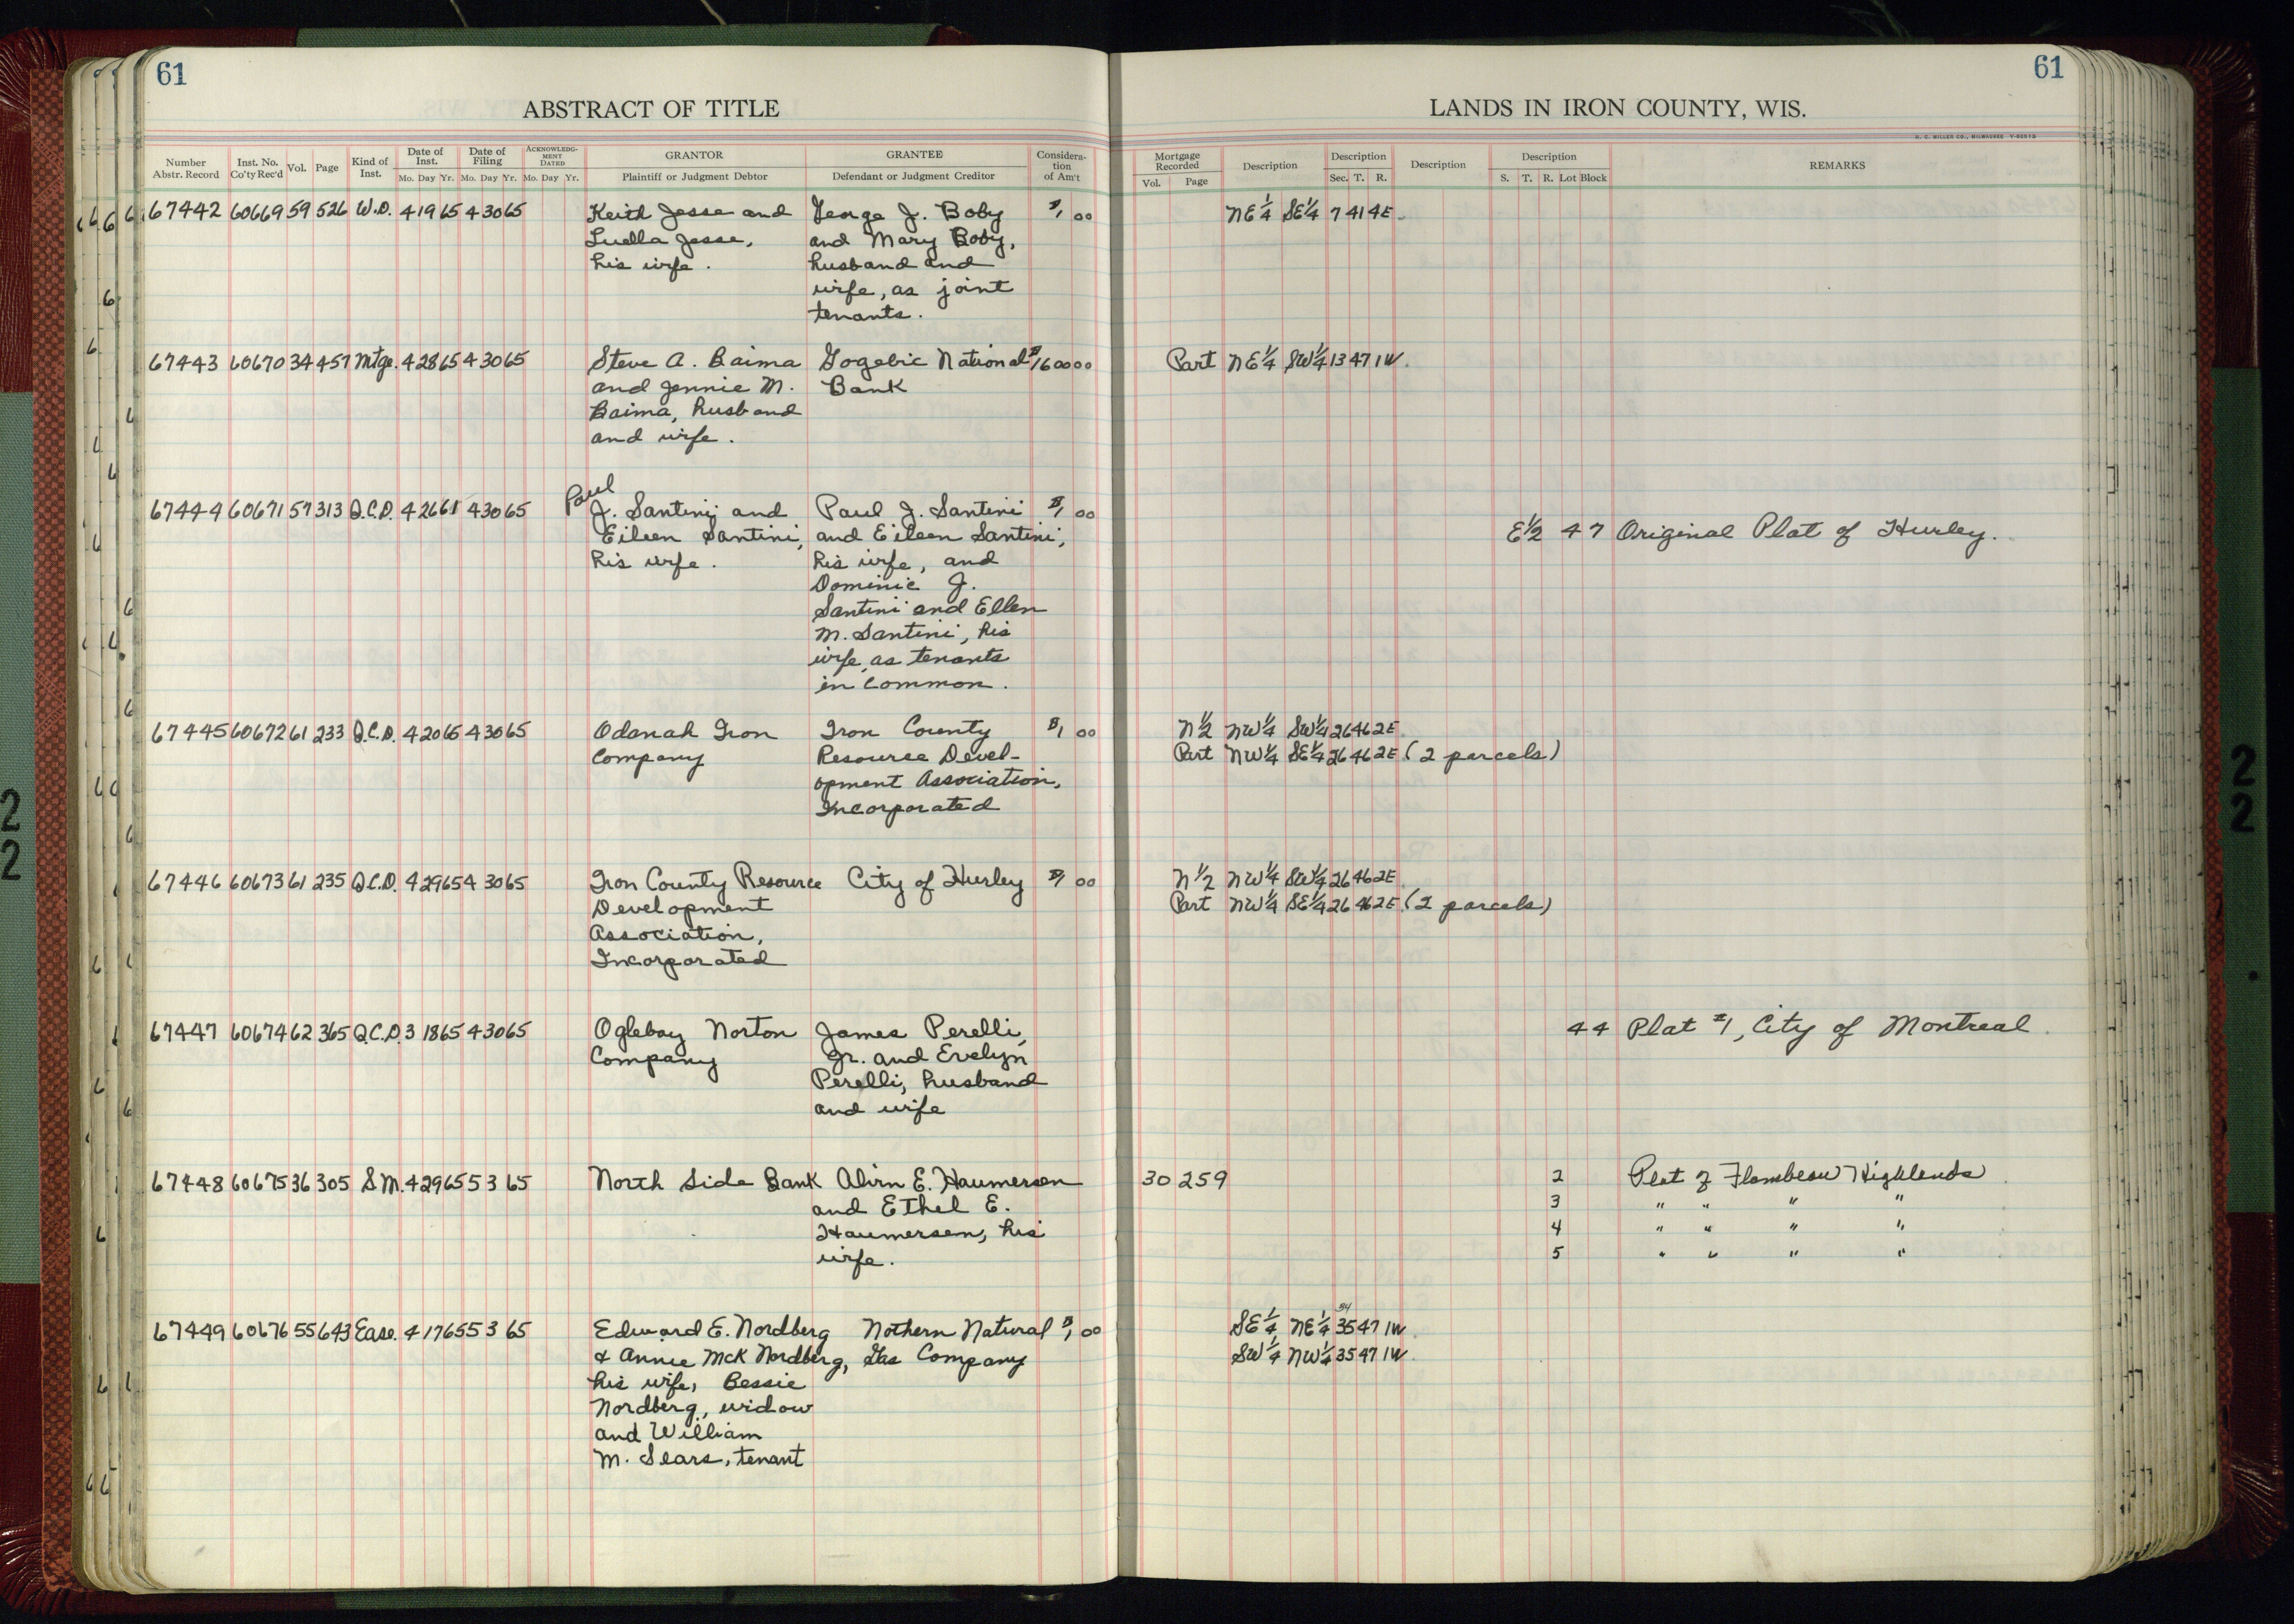 61
61
ABSTRACT OF TITLE
LANDS IN IRON COUNTY, WIS.
H. C. MILLER CO., MILWAUKEE
Number Abstr. Record Inst. No. Co'ty Rec'd Vol. Page Kind of Inst. Date of Inst. Mo. Day Yr. Date of Filing Mo. Day Yr. ACKNOWLEDGMENT DATED Mo. Day Yr. GRANTOR Plaintiff or Judgment Debtor GRANTEE Defendant or Judgment Creditor Consideration of Am't
Mortgage Recorded Vol. Page Description Description Sec. T. R. Description Description S. T. R. Lot Block REMARKS
67442 60669 59 526 W.D. 4 19 65 4 30 65 Keith Jesse and George J. Boby $1 00 NE 1/4 SE 1/4 7 41 4E
Luella Jesse, and Mary Boby,
his wife. husband and
wife, as joint
tenants.
67443 60670 34 457 Mtge. 4 28 65 4 30 65 Steve A. Baima Gogebic National $1600 00 Part NE 1/4 SW 1/4 13 47 1W.
and Jennie M. Bank
Baima, husband
and wife.
Paul
67444 60671 57 313 Q.C.D. 4 26 61 4 30 65 J. Santini and Paul J. Santini $1 00
Eileen Santini, and Eileen Santini, E 1/2 47 Original Plat of Hurley.
his wife. his wife, and
Dominic J.
Santini and Ellen
M. Santini, his
wife, as tenants
in common.
67445 60672 61 233 Q.C.D. 4 20 65 4 30 65 Odanah Iron Iron County $1 00 N 1/2 NW 1/4 SW 1/4 26 46 2E
Company Resource Devel- Part NW 1/4 SE 1/4 26 46 2E (2 parcels)
opment Association,
Incorporated
67446 60673 61 235 Q.C.D. 4 29 65 4 30 65 Iron County Resource City of Hurley $1 00 N 1/2 NW 1/4 SW 1/4 26 46 2E
Development Part NW 1/4 SE 1/4 26 46 2E (2 parcels)
Association,
Incorporated
67447 60674 62 365 Q.C.D. 3 18 65 4 30 65 Oglebay Norton James Perelli, 44 Plat #1, City of Montreal.
Company Jr. and Evelyn
Perelli, husband
and wife
67448 60675 36 305 S.M. 4 29 65 5 3 65 North Side Bank Alvin E. Haumersen 30 259 2 Plat of Flambeau Highlands
and Ethel E. 3 " " " "
Haumersen, his 4 " " " "
wife. 5 " " " "
34
67449 60676 55 643 Ease. 4 17 65 5 3 65 Edward E. Nordberg Nothern Natural $1 00 SE 1/4 NE 1/4 35 47 1W.
& Annie McK Nordberg, Gas Company SW 1/4 NW 1/4 35 47 1W.
his wife, Bessie
Nordberg, widow
and William
M. Sears, tenant
22
22